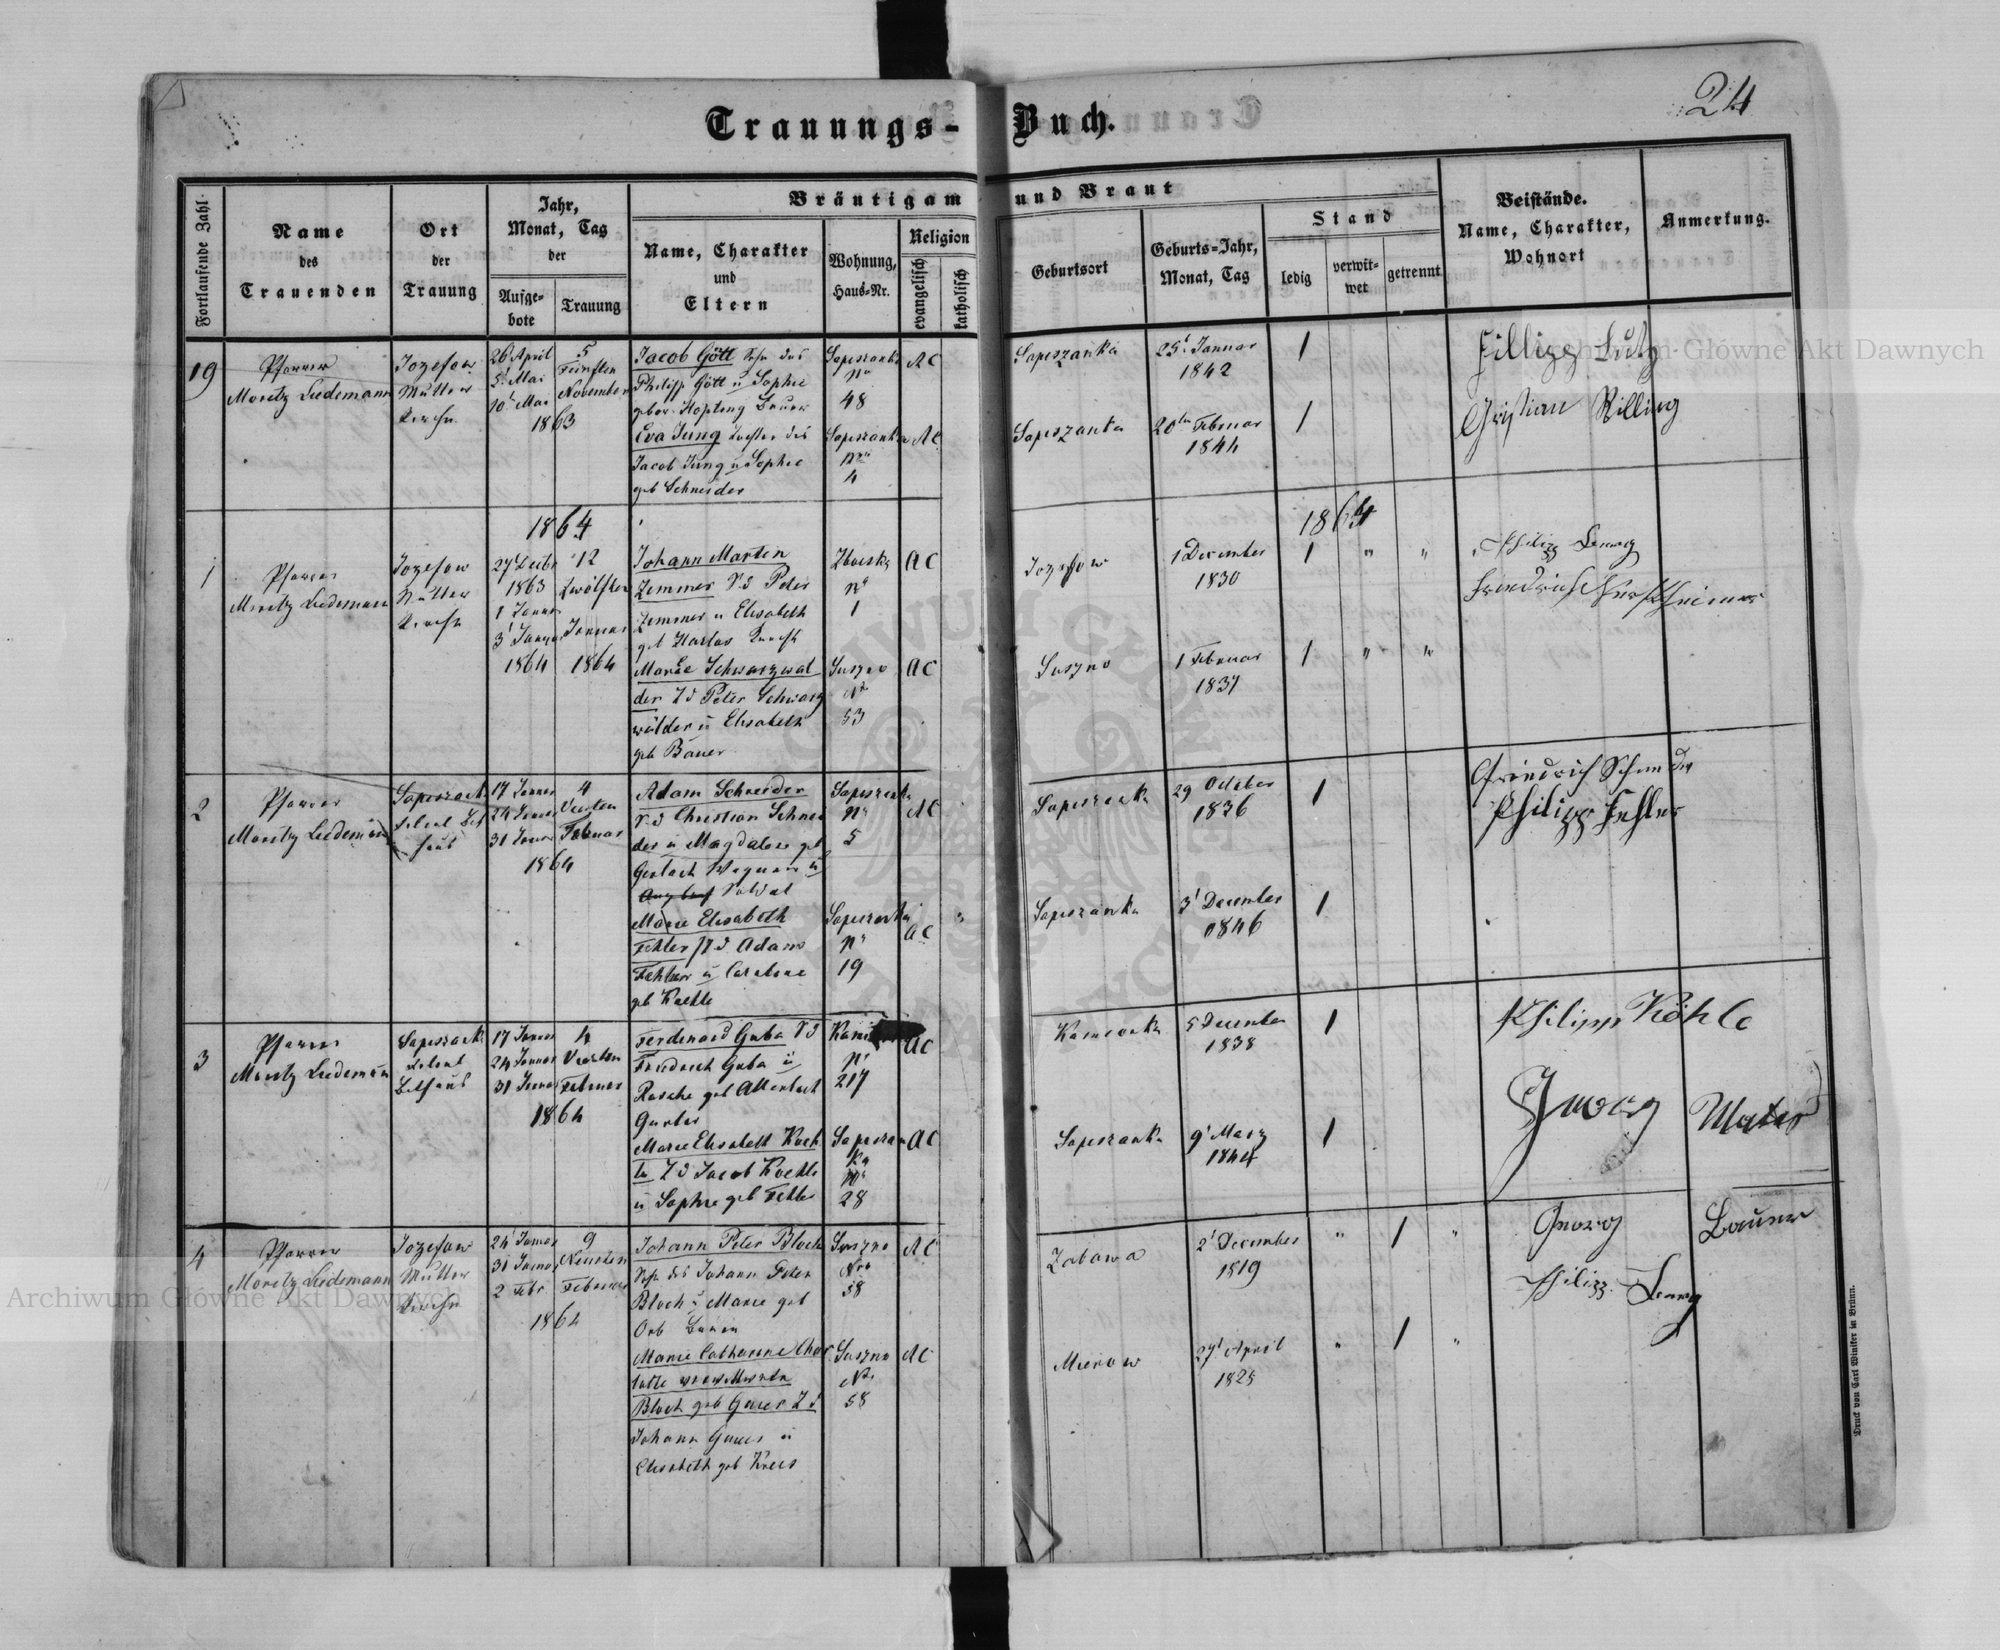 Trauungs-Buch.
24
Fortlaufende Zahl
Name
des
Trauenden
Ort
der
Trauung
Jahr,
Monat, Tag
der
Aufge-
bote
Trauung
Bräutigam und Braut
Name, Charakter
und
Eltern
Wohnung,
Haus-Nr.
Religion
evangelisch
katholisch
Geburtsort
Geburts-Jahr,
Monat, Tag
Stand
ledig
verwit-
wet
getrennt
Beistände.
Name, Charakter,
Wohnort
Anmerkung.
19
Pfarrer
Moritz Ludemann
Jozefow
Mutter
Kirche
26 April
5t Mai
10t Mai
1863
5
Fünften
November
Jacob Gött Sohn des
Philipp Gött u Sophie
gebor. Bauer
Sapieszanka
No
48
AC
Sapieszanka
25t Januar
1842
1
Fillipp Lutz
Eva Jung Tochter des
Jacob Jung u Sophie
geb Schneider
Sapieszanka
Nro
4
AC
Sapieszanka
20ten Februar
1844
1
Cristian Rilling
1864
1864
1
Pfarrer
Moritz Ludemann
Jozefow
Mutter
Kirche
27 Decbr
1863
1 Januar
3t Januar
1864
12
Zwölften
Januar
1864
Johann Martin
Zemmer S d Peter
Zemmer u Elisabeth
No
1
AC
Jozefow
1 December
1830
1 " "
Philipp
Friedrich
Marie Schwarzwäl
der T d Peter Schwarz
wälder u Elisabeth
geb Bauer
Suszno
No
53
AC
Suszno
1 Februar
1837
1 " "
2
Pfarrer
Moritz Ludemann
Sapieszanka
Filial Bet
haus
17 Januar
24 Januar
31 Januar
1864
4
Vierten
Februar
Adam Schneider
S d Christian Schnei
der u Magdalena geb
Gerlach Wagner u
Soldat
Sapieszanka
No
5
AC
Sapieszanka
29 October
1836
1
Friedrich Schneider
Philipp Fehler
Marie Elisabeth
Fehler T d Adam
Fehler u Carolina
geb Koehle
Sapieszanka
No
19
AC
Sapieszanka
3t December
1846
1
3
Pfarrer
Moritz Ludemann
Sapieszanka
Filial
Bethaus
17 Januar
24 Januar
31 Januar
1864
4
Vierten
Februar
Ferdinand Guba S d
Friedrich Guba u
geb
No
217
AC
Kamionka
5 December
1838
1
Philipp Köhle
Marie Elisabeth Koeh
le T d Jacob Koehle
u Sophie geb Fehler
Sapieszan
ka
No
28
AC
Sapieszanka
9t März
1844
1
Georg
4
Pfarrer
Moritz Ludemann
Jozefow
Mutter
Kirche
24t Januar
31 Januar
2 Febr
1864
9
Neunten
Februar
Johann Peter Bloch
Sohn des Johann Peter
Bloch u Marie geb
Orb Bauer
Suszno
Nro
58
AC
Zabawa
2t December
1819
" 1 "
Georg Bauer
Philipp
Marie Catharina Char
lotte
Bloch geb Gauer T d
Johann Gauer u
Elisabeth geb Kreis
Suszno
No
58
AC
Mierow
27t April
1825
" 1 "
Druck von Carl Winiker in Brünn.
Archiwum Główne Akt Dawnych
Archiwum Główne Akt Dawnych